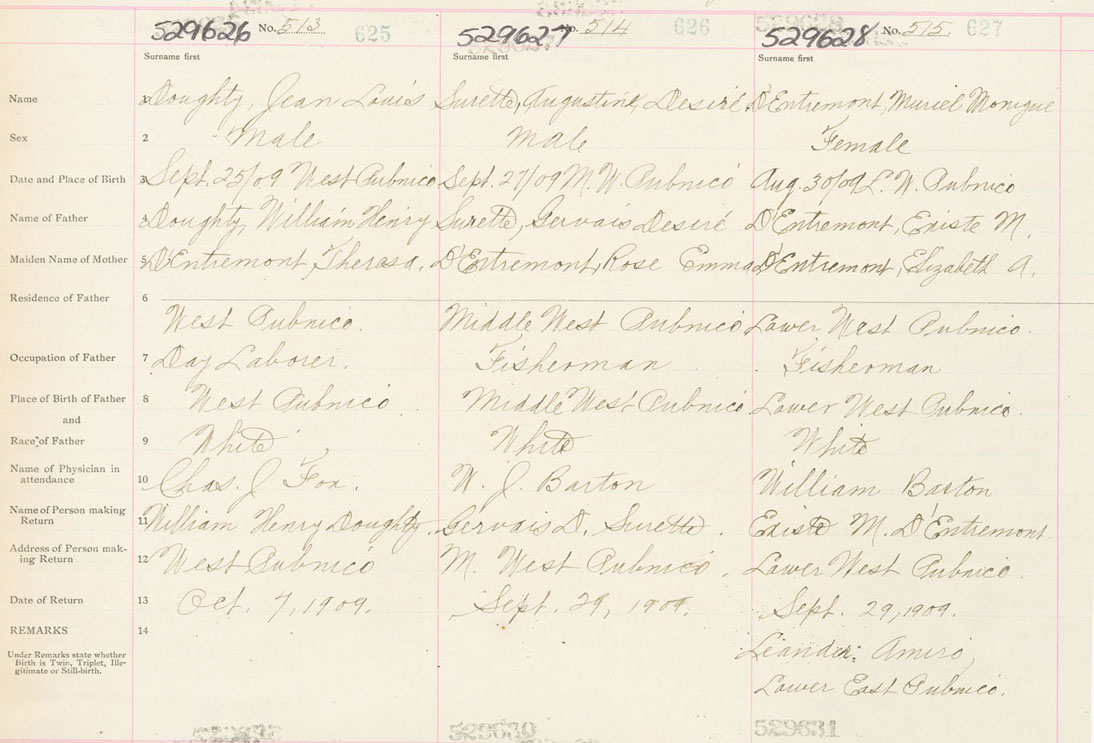 529626 No. 513 625 529627 No. 514 626 529628 No. 515 627
Surname first Surname first Surname first
Name 1 Doughty, Jean Louis Surette, Augustine, Desiré D'Entremont, Muriel Monique
Sex 2 Male Male Female
Date and Place of Birth 3 Sept. 25/09 West Pubnico Sept. 27/09 M. W. Pubnico Aug. 30/09 L. W. Pubnico
Name of Father 4 Doughty, William Henry Surette, Gervais Desiré D'Entremont, Existe M.
Maiden Name of Mother 5 D'Entremont, Theresa. D'Entremont, Rose Emma D'Entremont, Elizabeth A.
Residence of Father 6
West Pubnico. Middle West Pubnico Lower West Pubnico.
Occupation of Father 7 Day Laborer. Fisherman Fisherman
Place of Birth of Father 8 West Pubnico Middle West Pubnico Lower West Pubnico.
and
Race of Father 9 White White White
Name of Physician in
attendance 10 Chas. J Fox. W. J. Barton William Barton
Name of Person making
Return 11 William Henry Doughty. Gervais D. Surette. Existe M. D'Entremont.
Address of Person mak-
ing Return 12 West Pubnico M. West Pubnico. Lower West Pubnico.
Date of Return 13 Oct. 7, 1909. Sept. 29, 1909. Sept. 29, 1909.
REMARKS 14
Leander Amiro,
Under Remarks state whether
Birth is Twin, Triplet, Ille-
gitimate or Still-birth.
Lower East Pubnico.
529630 529631